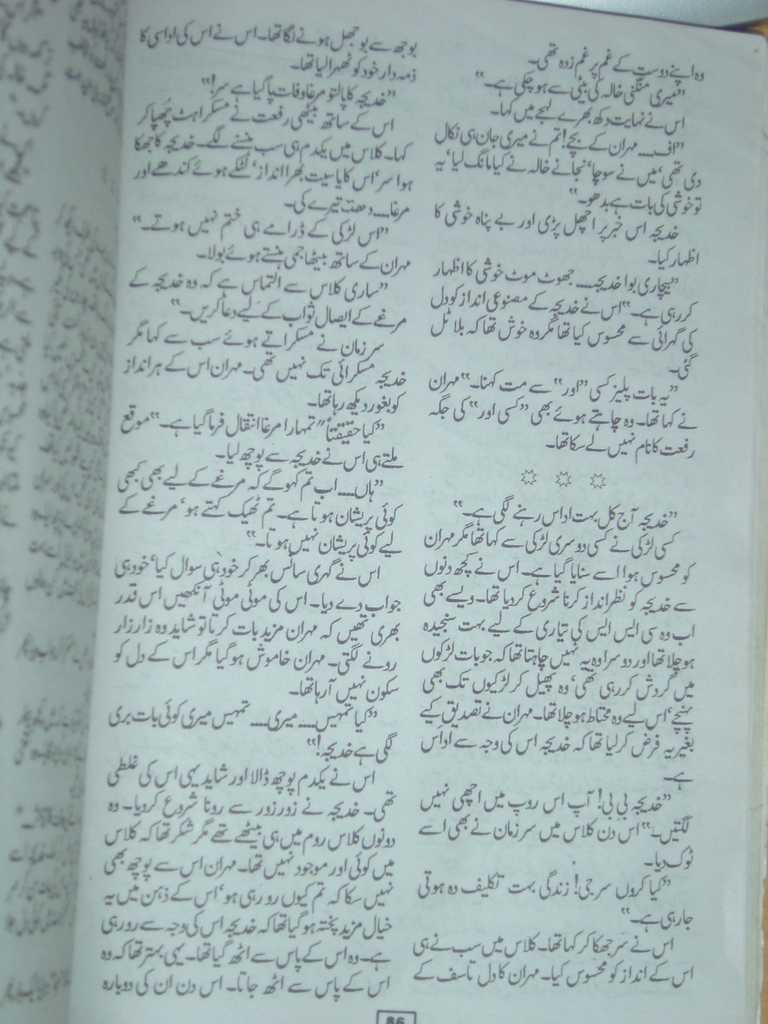 وہ اپنے دوست کے غم پر غم زدہ تھی۔
”میری منگنی خالہ کی بیٹی سے ہو چکی ہے۔“
اس نے نہایت دکھ بھرے لہجے میں کہا۔
”اف۔۔۔ مہران کے بچے! تم نے میری جان ہی نکال
دی تھی‘ میں نے سوچا‘ نجانے خالہ نے کیا مانگ لیا‘ یہ
تو خوشی کی بات ہے بدھو۔“
خدیجہ اس خبر پر اچھل پڑی اور بے پناہ خوشی کا
اظہار کیا۔
”بیچاری بوا خدیجہ۔۔۔ جھوٹ موٹ خوشی کا اظہار
کر رہی ہے۔“ اس نے خدیجہ کے مصنوعی انداز کو دل
کی گہرائی سے محسوس کیا تھا مگر وہ خوش تھا کہ بلا ٹل
گئی۔
”یہ بات پلیز کسی ”اور“ سے مت کہنا۔“ مہران
نے کہا تھا۔ وہ چاہتے ہوئے بھی ”کسی اور“ کی جگہ
رفعت کا نام نہیں لے سکا تھا۔
”خدیجہ آج کل بہت اداس رہنے لگی ہے۔“
کسی لڑکی نے کسی دوسری لڑکی سے کہا تھا مگر مہران
کو محسوس ہوا اسے سنایا گیا ہے۔ اس نے کچھ دنوں
سے خدیجہ کو نظر انداز کرنا شروع کر دیا تھا۔ ویسے بھی
اب وہ سی ایس ایس کی تیاری کے لیے بہت سنجیدہ
ہو چلا تھا اور دوسرا وہ یہ نہیں چاہتا تھا کہ جو بات لڑکوں
میں گردش کر رہی تھی‘ وہ پھیل کر لڑکیوں تک بھی
پہنچے‘ اس لیے وہ محتاط ہو چلا تھا۔ مہران نے تصدیق کیے
بغیر یہ فرض کر لیا تھا کہ خدیجہ اس کی وجہ سے اداس
ہے۔
”خدیجہ بی بی! آپ اس روپ میں اچھی نہیں
لگتیں۔“ اس دن کلاس میں سر زمان نے بھی اسے
ٹوک دیا۔
”کیا کروں سر جی! زندگی بہت تکلیف دہ ہوتی
جا رہی ہے۔“
اس نے سر جھکا کر کہا تھا۔ کلاس میں سب نے ہی
اس کے انداز کو محسوس کیا۔ مہران کا دل تاسف کے
بوجھ سے بوجھل ہونے لگا تھا۔ اس نے اس کی اداسی کا
ذمہ دار خود کو ٹھہرا لیا تھا۔
”خدیجہ کا پالتو مرغا وفات پا گیا ہے سر!“
اس کے ساتھ بیٹھی رفعت نے مسکراہٹ چھپا کر
کہا۔ کلاس میں یکدم ہی سب ہنسنے لگے۔ خدیجہ کا جھکا
ہوا سر‘ اس کا یاسیت بھرا انداز‘ لٹکے ہوئے کندھے اور
مرغا۔۔۔ دھت تیرے کی۔
”اس لڑکی کے ڈرامے ہی ختم نہیں ہوتے۔“
مہران کے ساتھ بیٹھا جمی ہنستے ہوئے بولا۔
”ساری کلاس سے التماس ہے کہ وہ خدیجہ کے
مرغے کے ایصال ثواب کے لیے دعا کریں۔“
سر زمان نے مسکراتے ہوئے سب سے کہا مگر
خدیجہ مسکرائی تک نہیں تھی۔ مہران اس کے ہر انداز
کو بغور دیکھ رہا تھا۔
”کیا حقیقتاً“ تمہارا مرغا انتقال فرما گیا ہے۔“ موقع
ملتے ہی اس نے خدیجہ سے پوچھ لیا۔
”ہاں۔۔۔ اب تم کہو گے کہ مرغے کے لیے بھی کبھی
کوئی پریشان ہوتا ہے۔ تم ٹھیک کہتے ہو‘ مرغے کے
لیے کوئی پریشان نہیں ہوتا۔“
اس نے گہری سانس بھر کر خود ہی سوال کیا‘ خود ہی
جواب دے دیا۔ اس کی موٹی موٹی آنکھیں اس قدر
بھری تھیں کہ مہران مزید بات کرتا تو شاید وہ زار زار
رونے لگتی۔ مہران خاموش ہو گیا مگر اس کے دل کو
سکون نہیں آ رہا تھا۔
”کیا تمہیں۔۔۔ میری۔۔۔ تمہیں میری کوئی بات بری
لگی ہے خدیجہ!“
اس نے یکدم پوچھ ڈالا اور شاید یہی اس کی غلطی
تھی۔ خدیجہ نے زور زور سے رونا شروع کر دیا۔ وہ
دونوں کلاس روم میں ہی بیٹھے تھے مگر شکر تھا کہ کلاس
میں کوئی اور موجود نہیں تھا۔ مہران اس سے پوچھ بھی
نہیں سکا کہ تم کیوں رو رہی ہو‘ اس کے ذہن میں یہ
خیال مزید پختہ ہو گیا تھا کہ خدیجہ اس کی وجہ سے رو رہی
ہے۔ وہ اس کے پاس سے اٹھ گیا تھا۔ یہی بہتر تھا کہ وہ
اس کے پاس سے اٹھ جاتا۔ اس دن ان کی دوبارہ
86